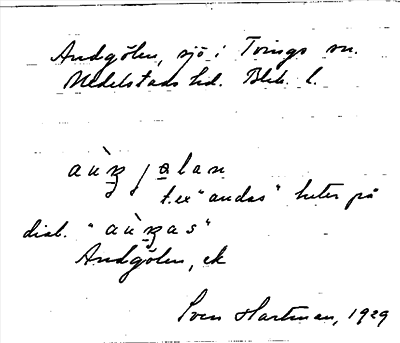 Andgölen, sjö i Tvings sn.
Medelstads hd. Blek. l.
t.ex "andas" heter på
dial. "aùnas"
Andgölen, ek
Sven Hartman, 1929